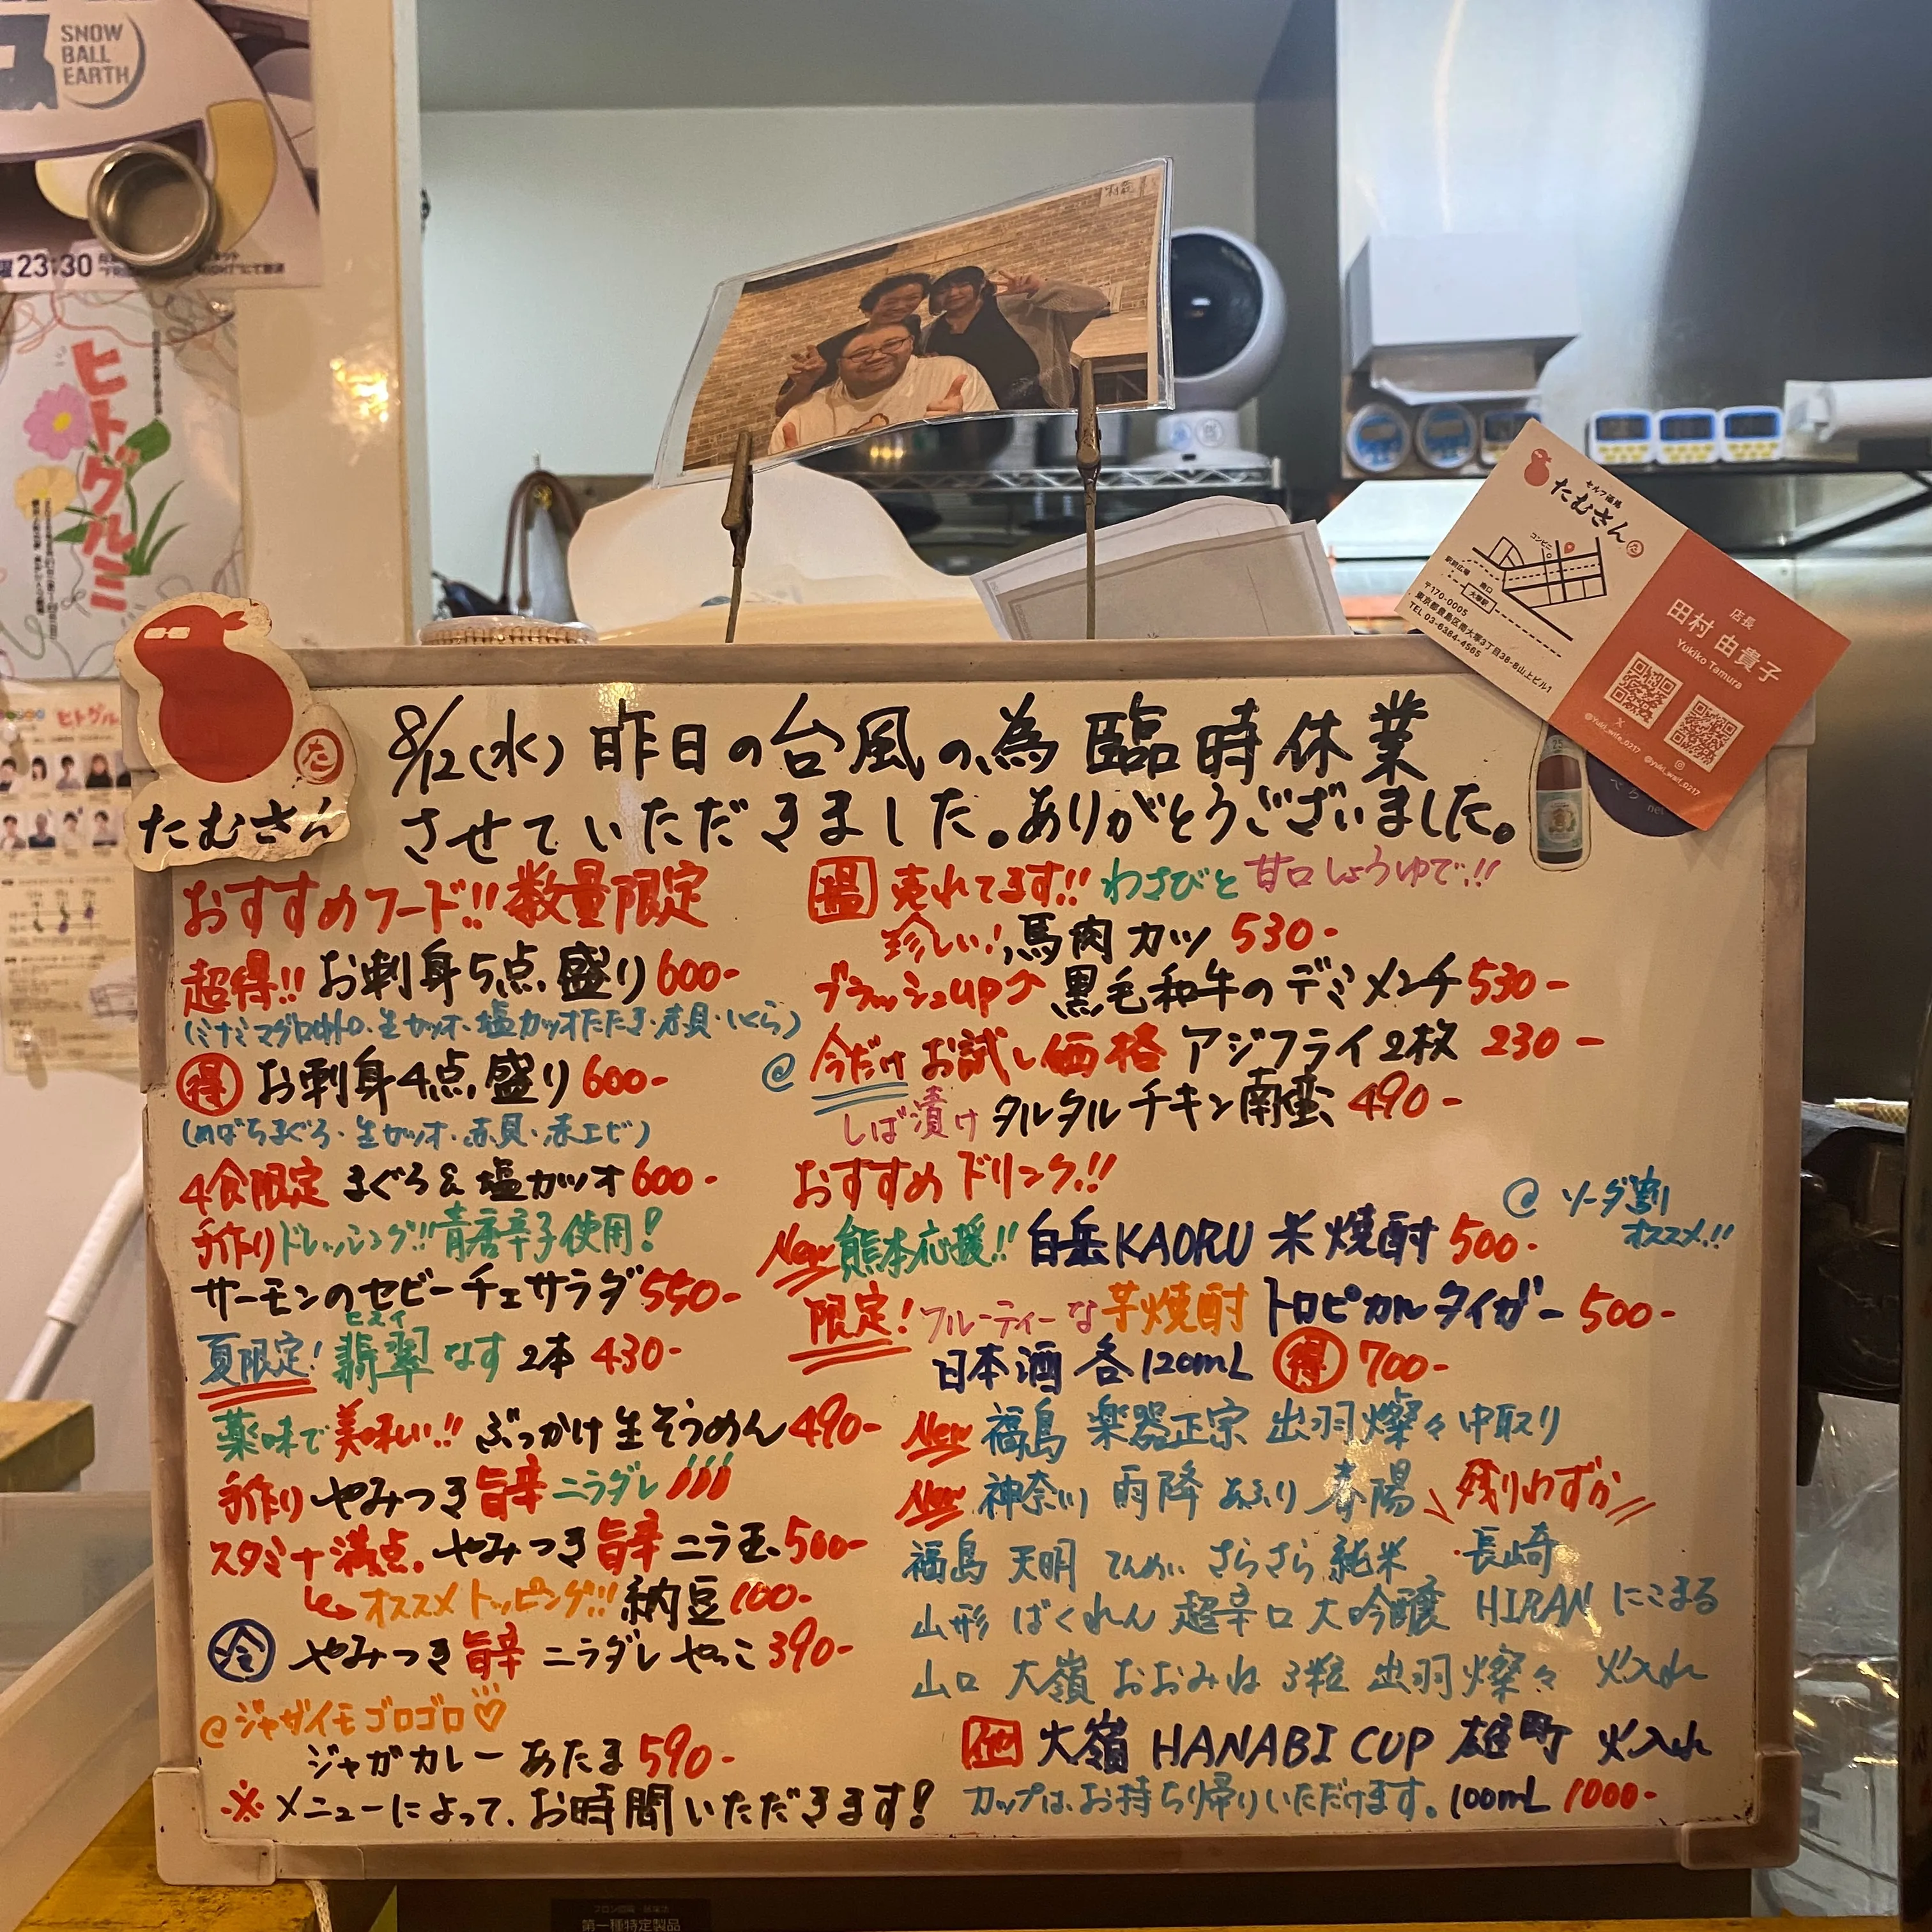 SNOW
BALL
EARTH
23:30
ヒトグルミ
セルフ酒場
たむさん
コンビニ
駅前広場
南口
大塚駅
〒170-0005
東京都豊島区南大塚3丁目38-8山上ビル1
TEL 03-6384-4565
店長
田村 由貴子
Yukiko Tamura
@yuki_wife_0217
@yuki_waif_0217
た
たむさん
8/12(水) 昨日の台風の為臨時休業
させていただきました。ありがとうございました。
おすすめフード!! 数量限定
超得!! お刺身5点盛り 600-
(ミナミマグロ中トロ・生カツオ・塩カツオたたき・赤貝・いくら)
得 お刺身4点盛り 600-
(めばちまぐろ・生カツオ・赤貝・赤エビ)
4食限定 まぐろ&塩カツオ 600-
手作りドレッシング!! 青唐辛子使用!
サーモンのセビーチェサラダ 550-
ヒスイ
夏限定! 翡翠なす 2本 430-
薬味で美味しい!! ぶっかけ生そうめん 490-
手作り やみつき旨辛ニラダレ
スタミナ満点。やみつき旨辛ニラ玉 500-
オススメトッピング!! 納豆 100-
冷 やみつき旨辛ニラダレやっこ 390-
@ジャガイモゴロゴロ♡
ジャガカレー あたま 590-
※メニューによって、お時間いただきます!
売れてます!! わさびと甘口しょうゆで!!
珍しい! 馬肉カツ 530-
ブラッシュup↗ 黒毛和牛のデミメンチ 530-
@ 今だけお試し価格 アジフライ2枚 230-
しば漬け タルタルチキン南蛮 490-
おすすめドリンク!!
@ ソーダ割
オススメ!!
New 熊本応援!! 白岳KAORU 米焼酎 500-
限定! フルーティーな芋焼酎 トロピカルタイガー 500-
日本酒 各120mL 得 700-
New 福島 楽器正宗 出羽燦々 中取り
New 神奈川 雨降 あふり 春陽 残りわずか
福島 天明 てんめい さらさら純米 ・長崎
山形 ばくれん 超辛口 大吟醸 HIRAN にこまる
山口 大嶺 おおみね 3粒 出羽燦々 火入れ
他 大嶺 HANABI CUP 雄町 火入れ
カップは、お持ち帰りいただけます。100mL 1000-
第一種特定製品